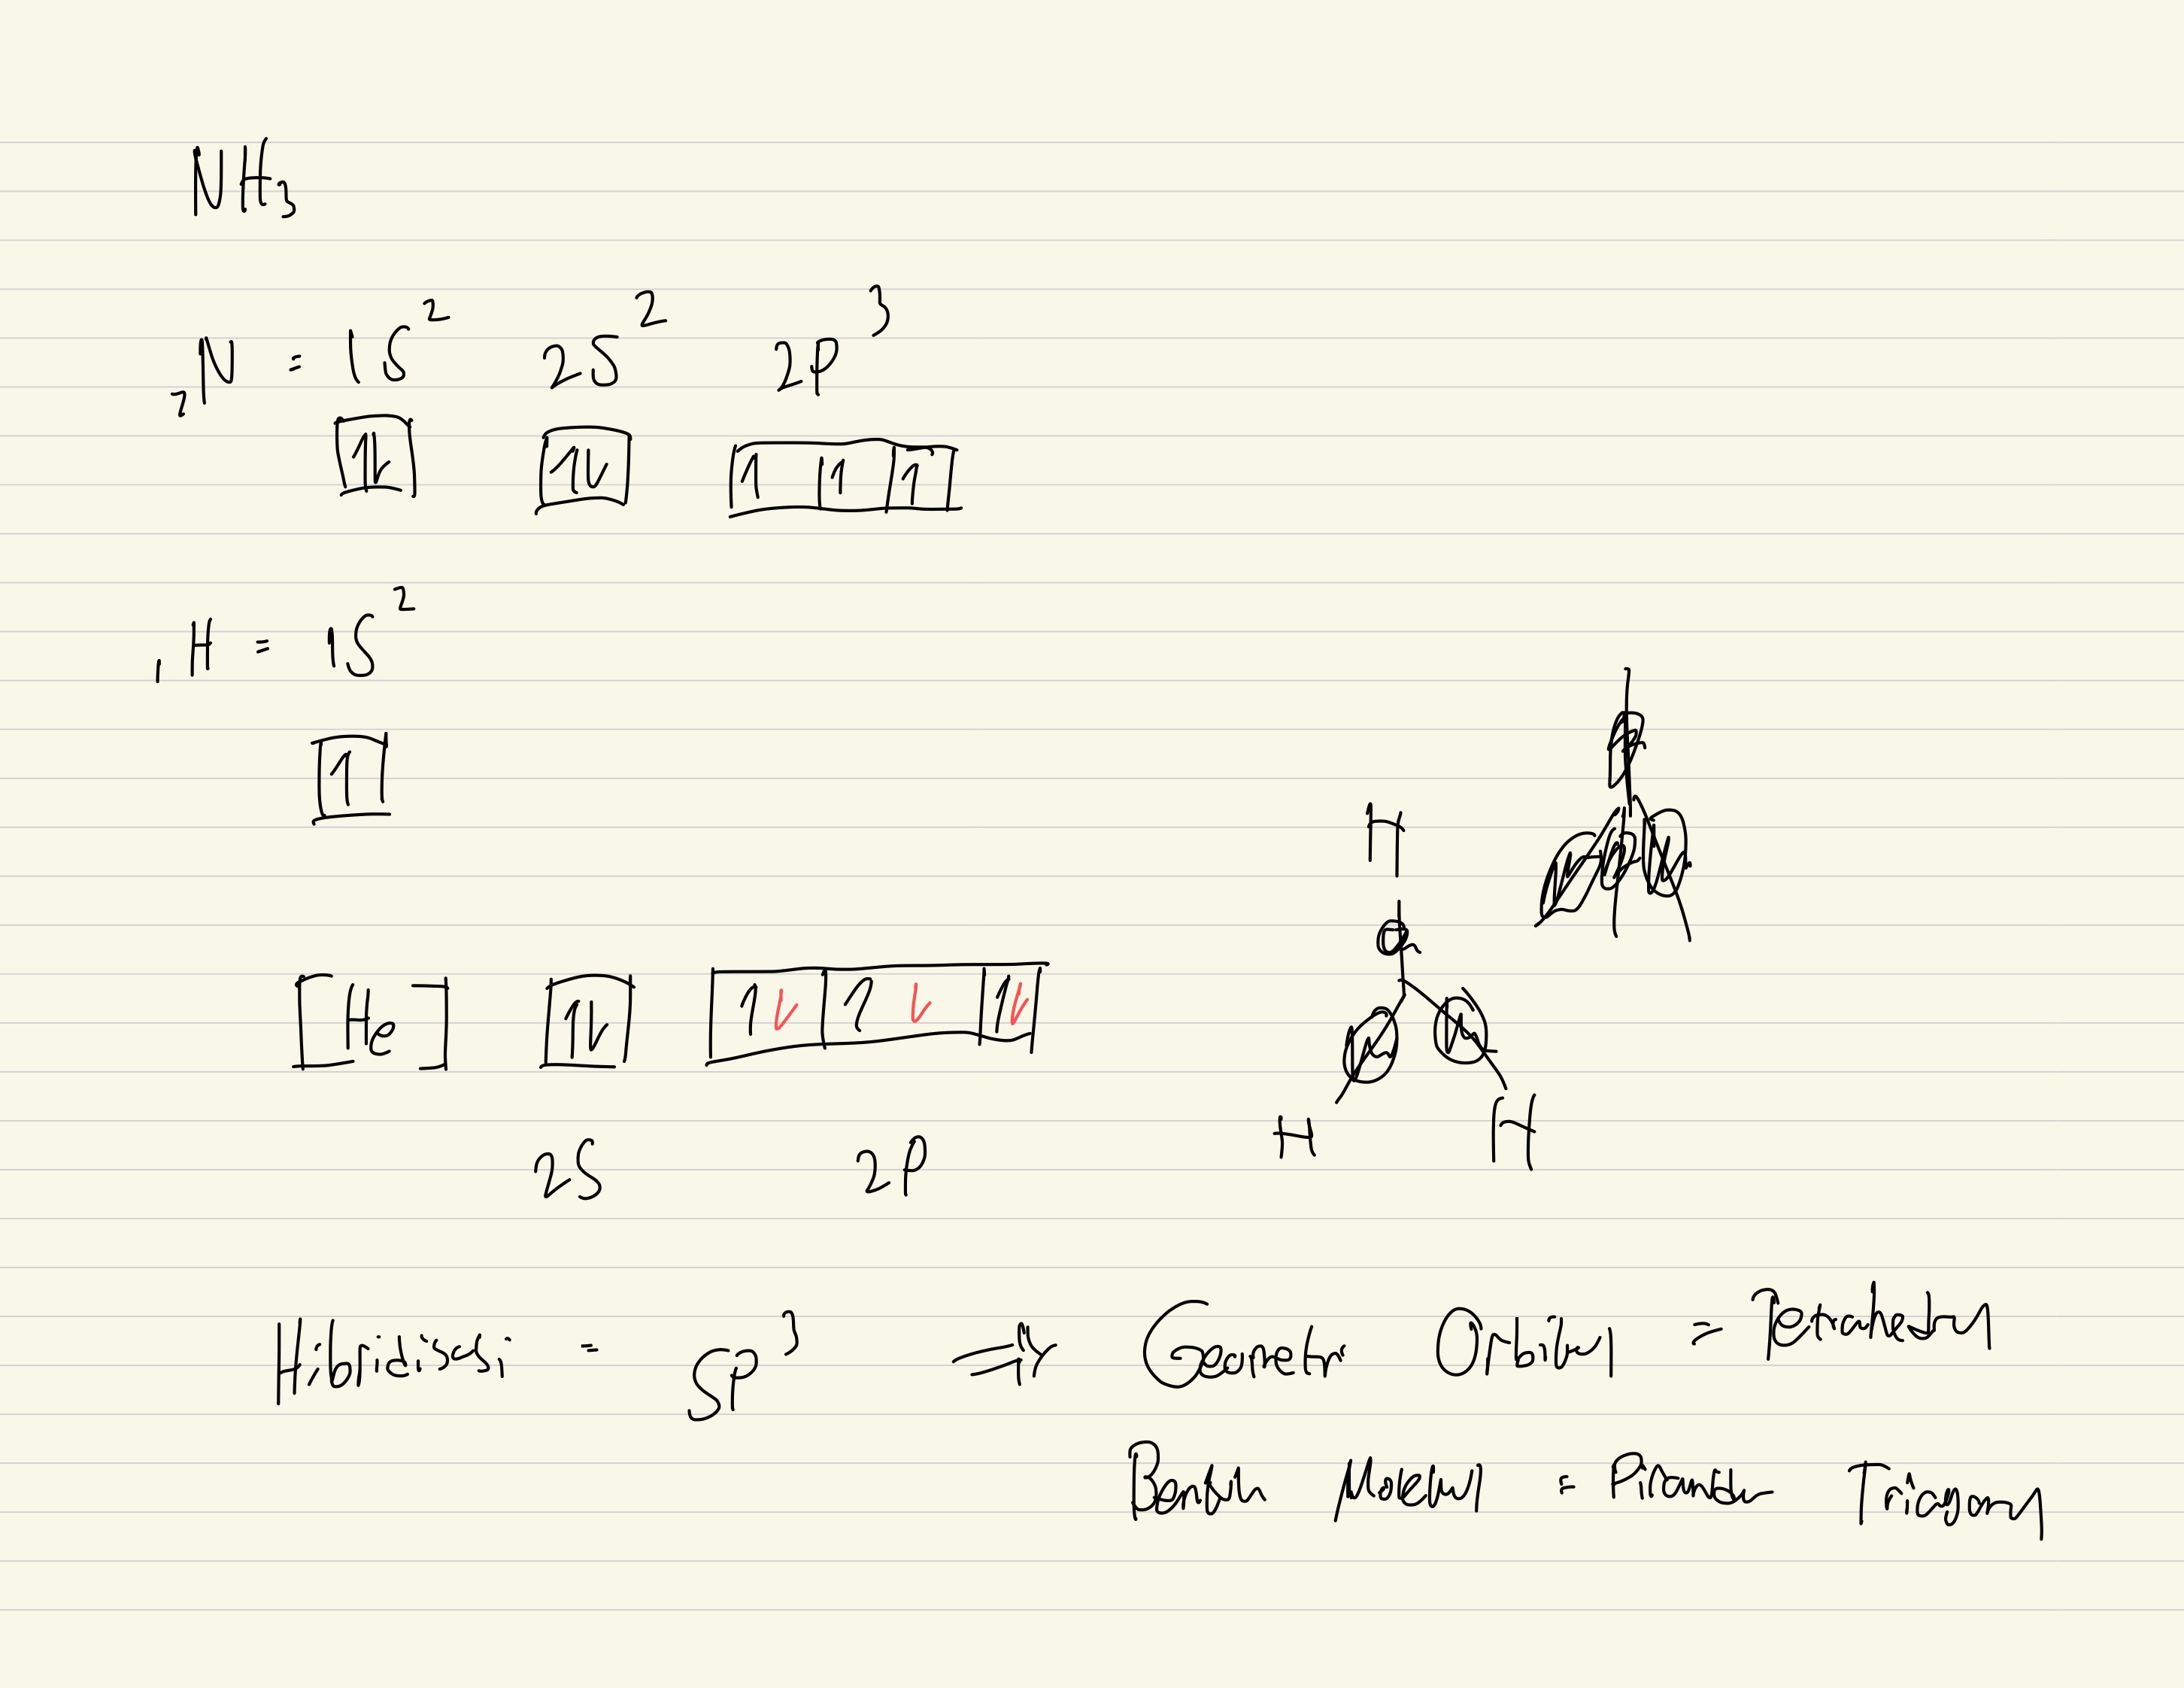 NH₃
₇N = 1S² 2S² 2P³
↑↓ ↑↓ ↑ ↑ ↑
₁H = 1S²
↑
H
[He] ↑↓ ↑↓ ↑↓ ↑↓
H H
2S 2P
Hibridisasi = SP³ ⇒ Geometri Orbital =
Bentuk Molekul = Piramida Trigonal